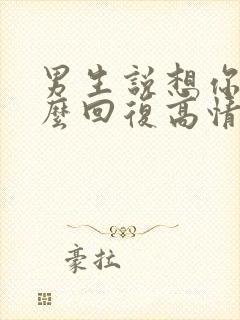 男生說想你
麼回復高情
豪拉